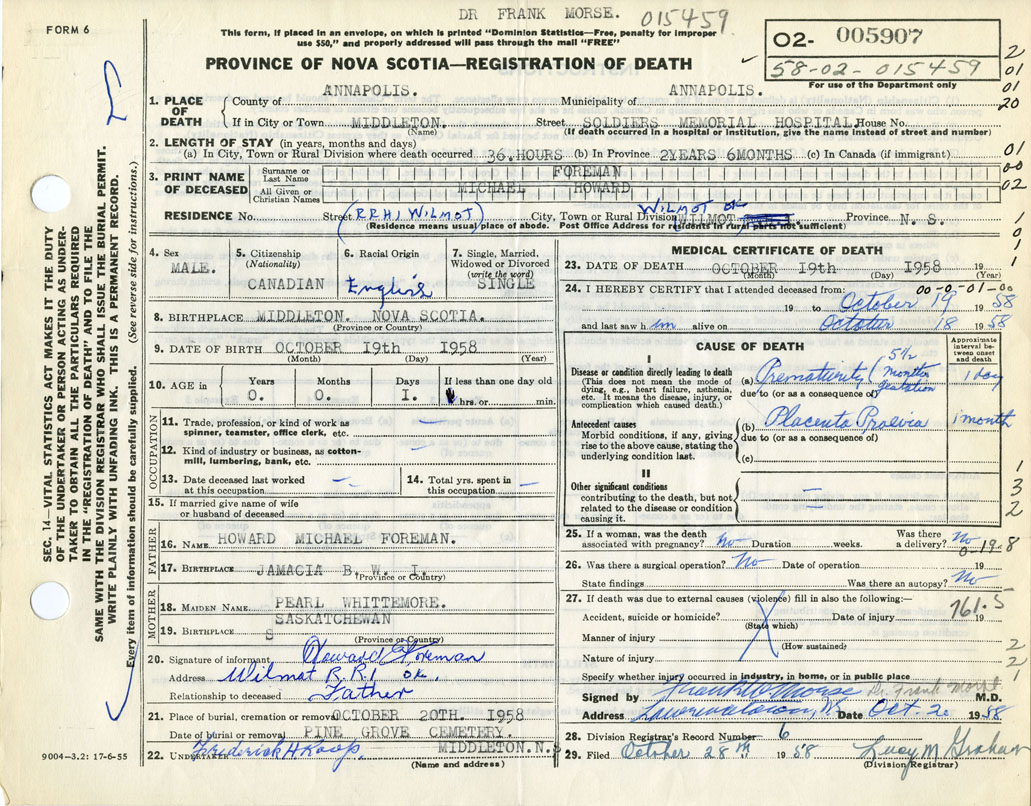 DR FRANK MORSE. 015459
FORM 6
This form, if placed in an envelope, on which is printed "Dominion Statistics—Free, penalty for improper
use $50," and properly addressed will pass through the mail "FREE"
02- 005907
58-02-015459
For use of the Department only
PROVINCE OF NOVA SCOTIA—REGISTRATION OF DEATH
1. PLACE OF DEATH
County of ANNAPOLIS. Municipality of ANNAPOLIS.
If in City or Town MIDDLETON. Street SOLDIERS MEMORIAL HOSPITAL. House No.
(Name) (If death occurred in a hospital or institution, give the name instead of street and number)
2. LENGTH OF STAY (in years, months and days)
(a) In City, Town or Rural Division where death occurred 36.HOURS (b) In Province 2YEARS 6MONTHS (c) In Canada (if immigrant)
3. PRINT NAME OF DECEASED
Surname or Last Name FOREMAN
All Given or Christian Names MICHAEL HOWARD
RESIDENCE No. Street (R.R#1 WILMOT) City, Town or Rural Division WILMOT WILMOT Province N. S.
(Residence means usual place of abode. Post Office Address for residents in rural parts not sufficient)
4. Sex MALE.
5. Citizenship (Nationality) CANADIAN
6. Racial Origin English
7. Single, Married, Widowed or Divorced (write the word) SINGLE
8. BIRTHPLACE MIDDLETON. NOVA SCOTIA.
(Province or Country)
9. DATE OF BIRTH OCTOBER 19th 1958
(Month) (Day) (Year)
10. AGE in Years Months Days If less than one day old
0. 0. I. hrs. or min.
OCCUPATION
11. Trade, profession, or kind of work as spinner, teamster, office clerk, etc. —
12. Kind of industry or business, as cotton-mill, lumbering, bank, etc. —
13. Date deceased last worked at this occupation —
14. Total yrs. spent in this occupation —
15. If married give name of wife or husband of deceased
FATHER
16. NAME HOWARD MICHAEL FOREMAN.
17. BIRTHPLACE JAMACIA B. W. I.
(Province or Country)
MOTHER
18. MAIDEN NAME PEARL WHITTEMORE.
19. BIRTHPLACE S SASKATCHEWAN
(Province or Country)
20. Signature of informant Howard Foreman
Address Wilmot R.R1 ok.
Relationship to deceased Father
21. Place of burial, cremation or removal OCTOBER 20TH. 1958
Date of burial or removal PINE GROVE CEMETERY.
22. UNDERTAKER Frederick H. Roop MIDDLETON.N.S
(Name and address)
MEDICAL CERTIFICATE OF DEATH
23. DATE OF DEATH OCTOBER 19th 1958 19
(Month) (Day) (Year)
24. I HEREBY CERTIFY that I attended deceased from: 00-0-01-00
19 to October 19 1958
and last saw him alive on October 18 1958
CAUSE OF DEATH
Approximate interval between onset and death
I
Disease or condition directly leading to death
(This does not mean the mode of dying, e.g., heart failure, asthenia, etc. It means the disease, injury, or complication which caused death.)
(a) Prematurity (5½ months gestation 1 day
due to (or as a consequence of)
Antecedent causes
Morbid conditions, if any, giving rise to the above cause, stating the underlying condition last.
(b) Placenta Praevia 1 month
due to (or as a consequence of)
(c)
II
Other significant conditions
contributing to the death, but not related to the disease or condition causing it.
—
25. If a woman, was the death associated with pregnancy? No Duration weeks. Was there a delivery? No
0-19-8
26. Was there a surgical operation? No Date of operation 19
State findings Was there an autopsy? No
27. If death was due to external causes (violence) fill in also the following:—
761.5
Accident, suicide or homicide? Date of injury 19
(State which)
Manner of injury
(How sustained)
Nature of injury
Specify whether injury occurred in industry, in home, or in public place
Signed by Frank W Morse Dr. Frank Morse M.D.
Address Lawrencetown, NS Date Oct. 20 1958
28. Division Registrar's Record Number 6
29. Filed October 28th 1958 Lucy M. Graham
(Division Registrar)
SEC. 14—VITAL STATISTICS ACT MAKES IT THE DUTY
OF THE UNDERTAKER OR PERSON ACTING AS UNDER-
TAKER TO OBTAIN ALL THE PARTICULARS REQUIRED
IN THE "REGISTRATION OF DEATH" AND TO FILE THE
SAME WITH THE DIVISION REGISTRAR WHO SHALL ISSUE THE BURIAL PERMIT.
WRITE PLAINLY WITH UNFADING INK. THIS IS A PERMANENT RECORD.
Every item of information should be carefully supplied. (See reverse side for instructions.)
9004—3.2: 17-6-55
2
01
01
20
01
00
02
1
0
1
1
3
2
2
2
1